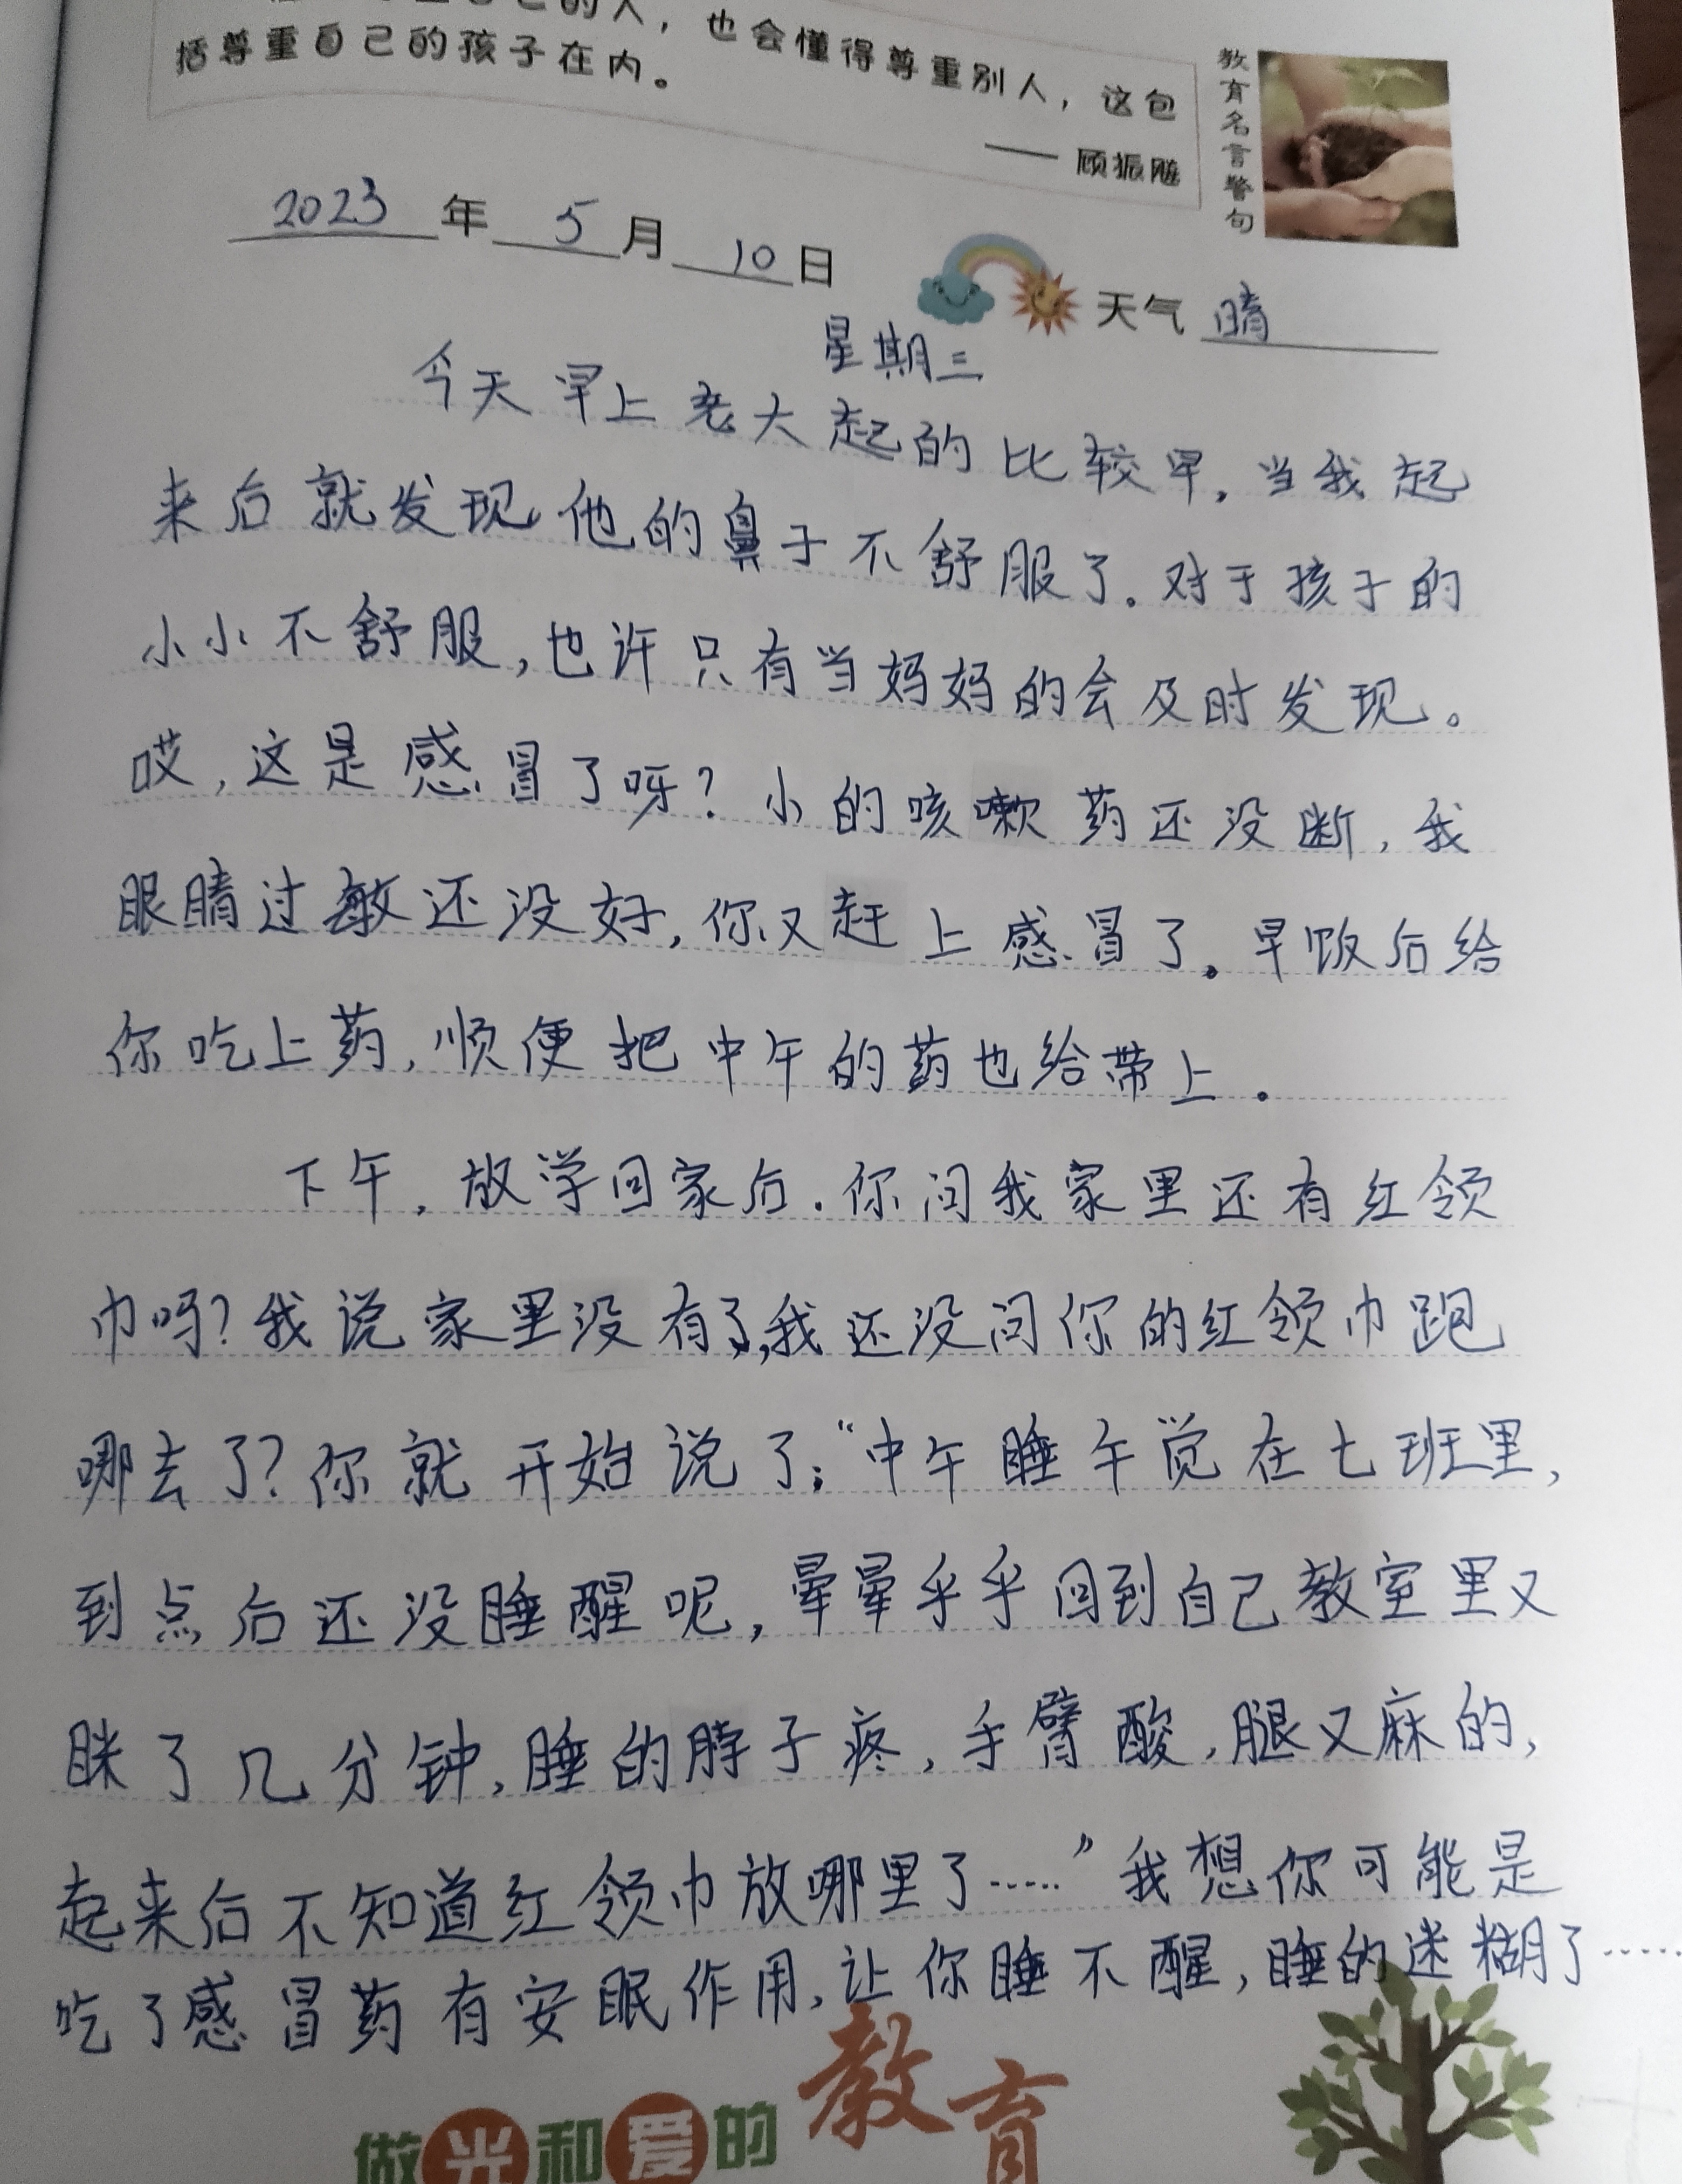 的人，也会懂得尊重别人，这包
括尊重自己的孩子在内。
—— 顾振飚
教育名言警句
2023年5月10日
天气 晴
星期三
今天早上老大起的比较早。当我起
来后就发现他的鼻子不舒服了。对于孩子的
小小不舒服，也许只有当妈妈的会及时发现。
哎，这是感冒了呀？小的咳嗽药还没断，我
眼睛过敏还没好，你又赶上感冒了。早饭后给
你吃上药，顺便把中午的药也给带上。
下午，放学回家后.你问我家里还有红领
巾吗？我说家里没有了，我还没问你的红领巾跑
哪去了？你就开始说了；“中午睡午觉在七班里，
到点后还没睡醒呢，晕晕乎乎回到自己教室里又
眯了几分钟，睡的脖子疼，手臂酸，腿又麻的，
起来后不知道红领巾放哪里了……”我想你可能是
吃了感冒药有安眠作用，让你睡不醒，睡的迷糊了……
做光和爱的教育